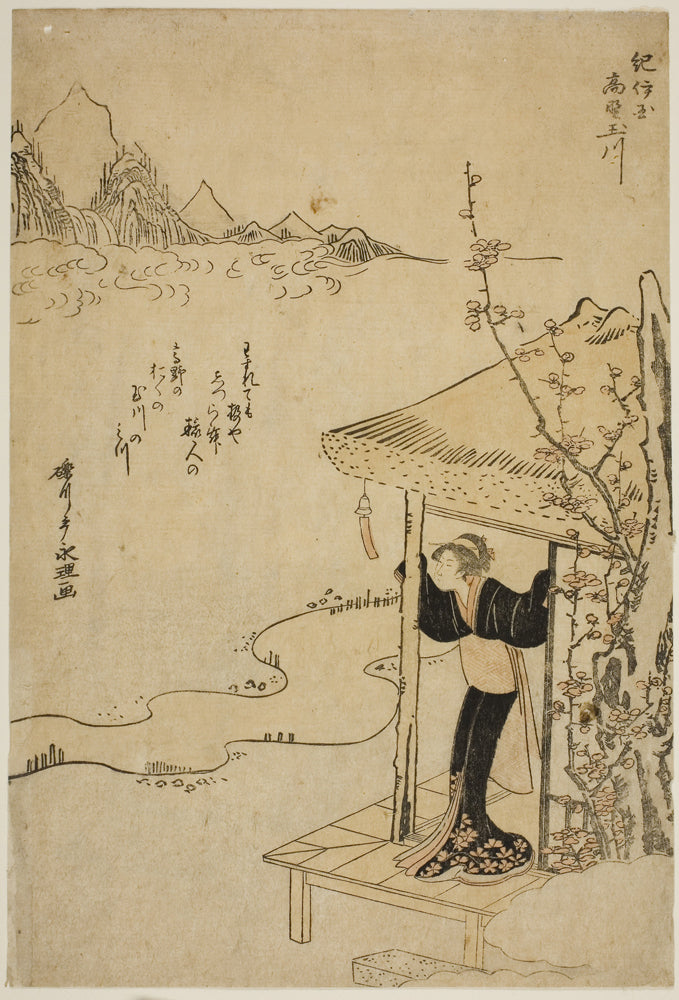 紀伊国
高野玉川
わすれても
汲や
しつらむ
旅人の
高野の
おくの
玉川の
みつ
礫川亭永理画